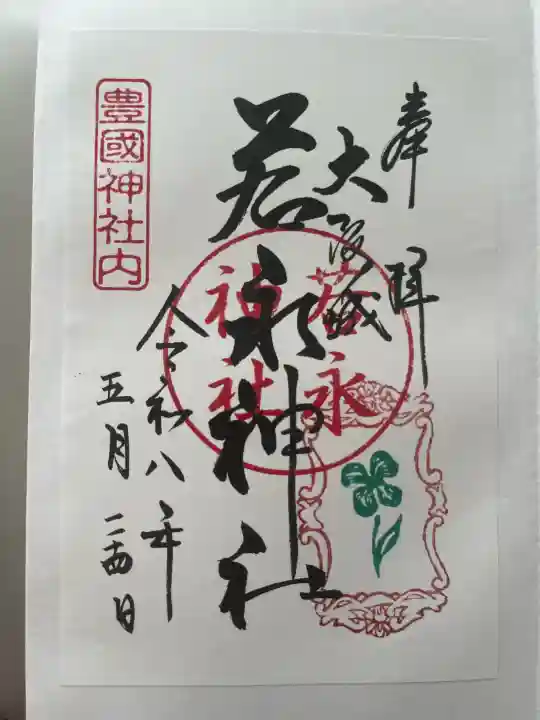 奉拝
大阪城
若永神社
若永
神社
豊國神社内
令和八年
五月二四日